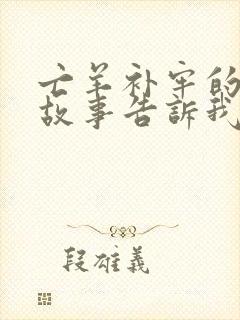 亡羊补牢的
故事告訴我
段雄義